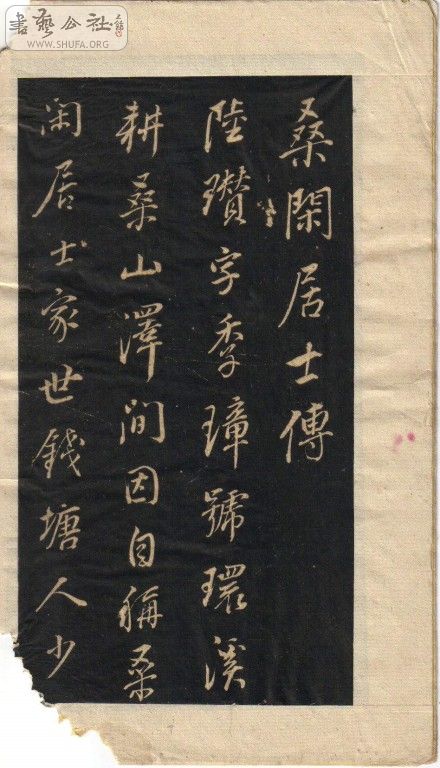 書藝公社
WWW.SHUFA.ORG
桑閑居士傳
陸瓚字季璋號環溪
耕桑山澤間因自稱桑
閑居士家世錢塘人少